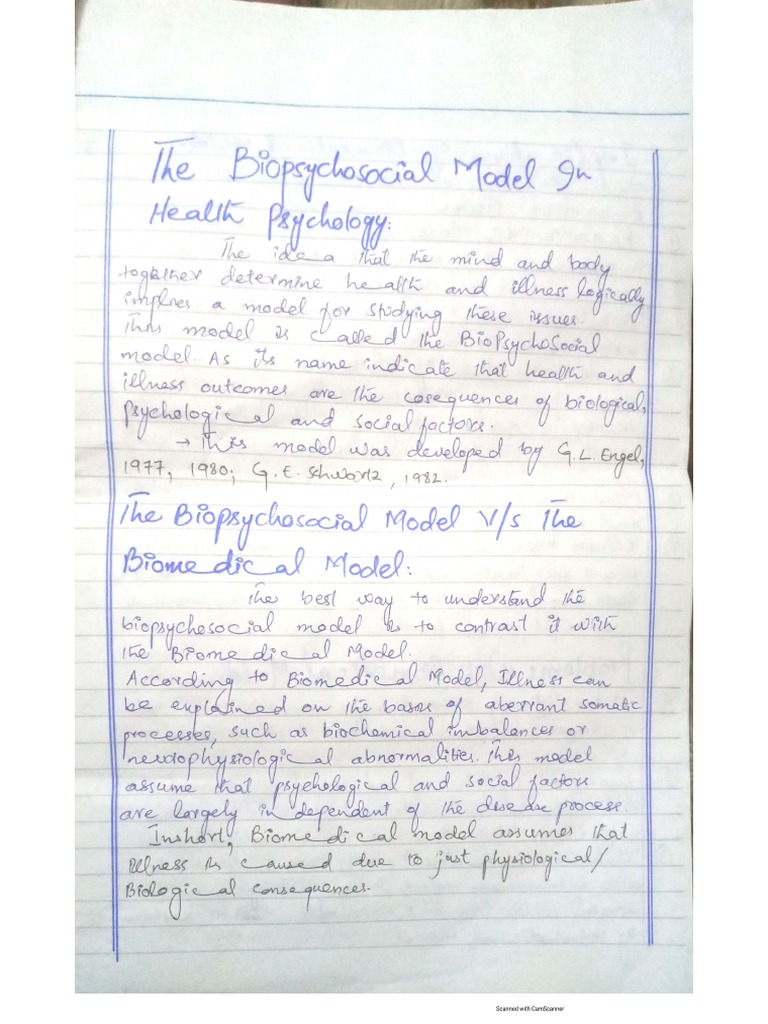 The Biopsychosocial Model In
Health Psychology:
The idea that the mind and body
together determine health and illness logically
implies a model for studying these issues.
This model is called the BioPsychoSocial
model. As its name indicate that health and
illness outcomes are the cosequences of biological,
Psychological and social factors.
→ This model was developed by G.L. Engel,
1977, 1980; G.E. Schwartz, 1982.
The Biopsychosocial Model V/s The
Biomedical Model:
The best way to understand the
biopsychosocial model is to contrast it with
the Biomedical Model.
According to Biomedical Model, Illness can
be explained on the basis of aberrant somatic
processes, such as biochemical imbalances or
neurophysiological abnormalities. This model
assume that psychological and social factors
are largely independent of the disease process.
Inshort, Biomedical model assumes that
illness is caused due to just physiological/
Biological consequences.
Scanned with CamScanner